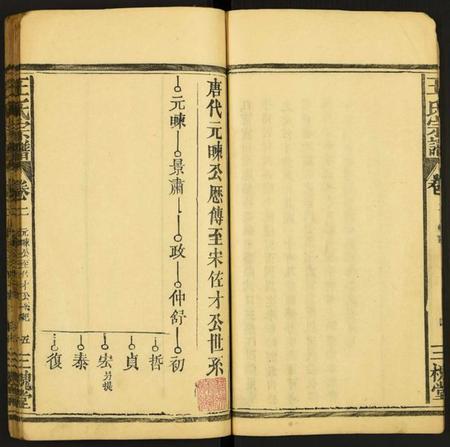 王氏宗譜
三槐堂
唐代元暕公厯傳至宋佐才公世系
元暕 景肅 政 仲舒 初
哲
貞
宏 另提
泰
復
王氏宗譜 卷二 五 三槐堂